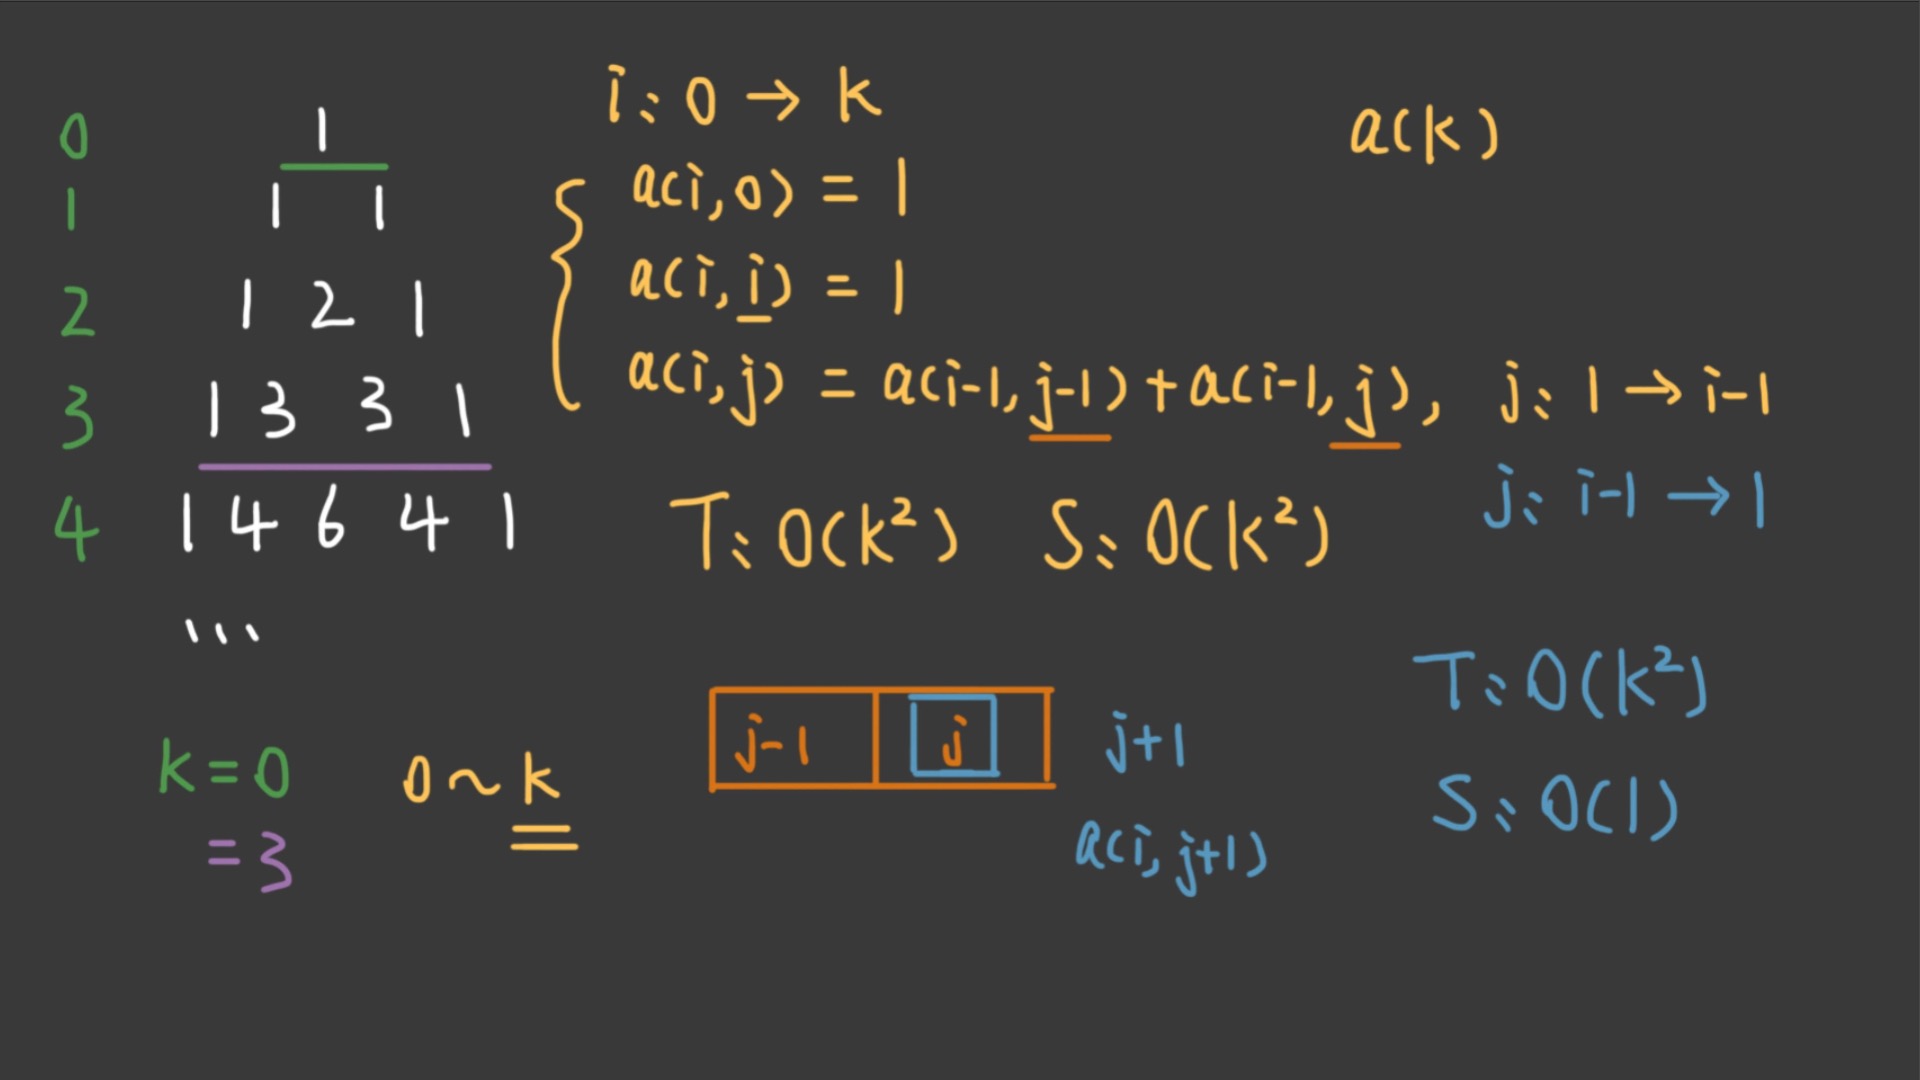 0 1
1 1 1
2 1 2 1
3 1 3 3 1
4 1 4 6 4 1
...
k=0
=3
0~k
i: 0 → k
a(i,0) = 1
a(i,i) = 1
a(i,j) = a(i-1,j-1)+a(i-1,j), j: 1 → i-1
j: i-1 → 1
T: O(k²) S: O(k²)
a(k)
j-1 j j+1
a(i,j+1)
T: O(k²)
S: O(1)